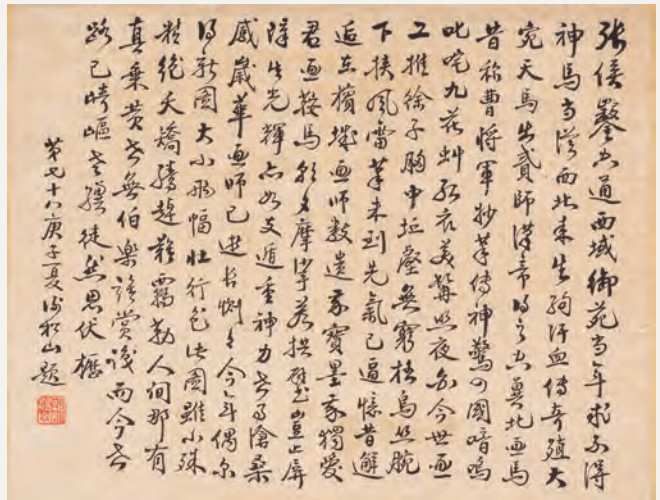 張侯鑿空通西域御苑當年求不得
神馬當從西北來生駒汗血傳奇殖大
宛天馬出貳師漢帝得之空冀北畫馬
昔称曹將軍妙筆傳神驚四國喑嗚
叱咤九花虬衣美髯照夜今世畫
工推徐子胸中丘壑無窮極烏絲腕
下挾風雷筆未到先氣已逼憶昔邂
逅在檳城畫師數遺我寶墨我獨愛
君畫鞍馬多摩挲若拱璧豈止屏
障生光輝亦如支遁重神力世事滄桑
感歲華畫師已逝長惻々今年偶尔
得新圖大小幅壯行色此圖雖小殊
精絕夭矯騰趠難羈勒人间那有
真乘黄世無伯樂誰賞識而今世
路已崎嶇老驥徒然思伏櫪
第七十八庚子夏松山題